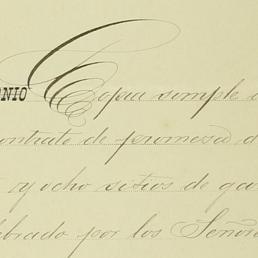 ONIO Copia simple d
contrato de promesa d
y ocho sitios de ga
lebrado por los Señor